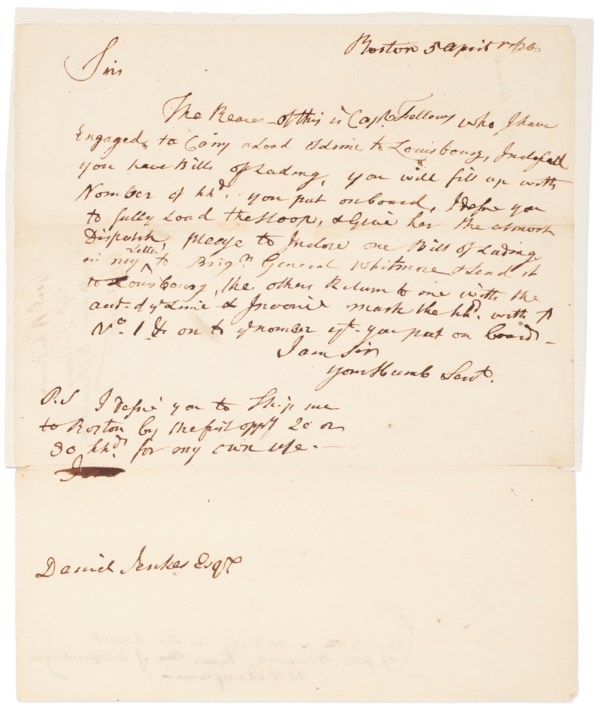 Boston 5 april 1760
Sir
The Bearer of this is Capt. Fellows who I have
Engaged to Carry a Load of Lime to Louisbourg, Inclosed
you have Bills of Lading, you will fill up with
Nomber of hhds. you put onboard, I desire you
to fully Load the Sloop, & Give her the utmost
Dispatch, please to Inclose one Bill of Lading
in my Letter to Brigr. General Whitmore & Send it
to Louisbourg, the other Return to me with the
amt. of ye Lime & Invoice mark the hhds. with
No. 1 & on to ye number yt. you put on board -
I am Sir
your Humb Servt.
P.S I desire you to Ship me
to Boston by the first oppy 20 or
30 hhds for my own use. -
Daniel Jenkes Esqr